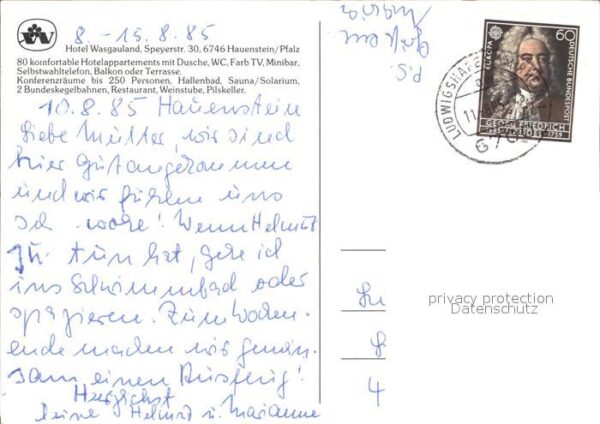 8. - 15. 8. 85
Hotel Wasgauland, Speyerstr. 30, 6746 Hauenstein/Pfalz
80 komfortable Hotelappartements mit Dusche, WC, Farb TV, Minibar,
Selbstwahltelefon, Balkon oder Terrasse.
Konferenzräume bis 250 Personen, Hallenbad, Sauna/Solarium,
2 Bundeskegelbahnen, Restaurant, Weinstube, Pilskeller.
10.8.85 Hauenstein
Liebe Mutter, wir sind
hier gut angekommen
und wir fühlen uns
wohl! Wenn Helmut
zu tun hat, gehe ich
ins Schwimmbad oder
spazieren. Zum Wochen-
ende machen wir gemein-
sam einen Ausflug!
Herzlichst
Deine Helmut u. Marianne
P.S.
60
EUROPA
DEUTSCHE BUNDESPOST
GEORG FRIEDRICH
1759
LUDWIGSHAFEN
11
4
privacy protection
Datenschutz